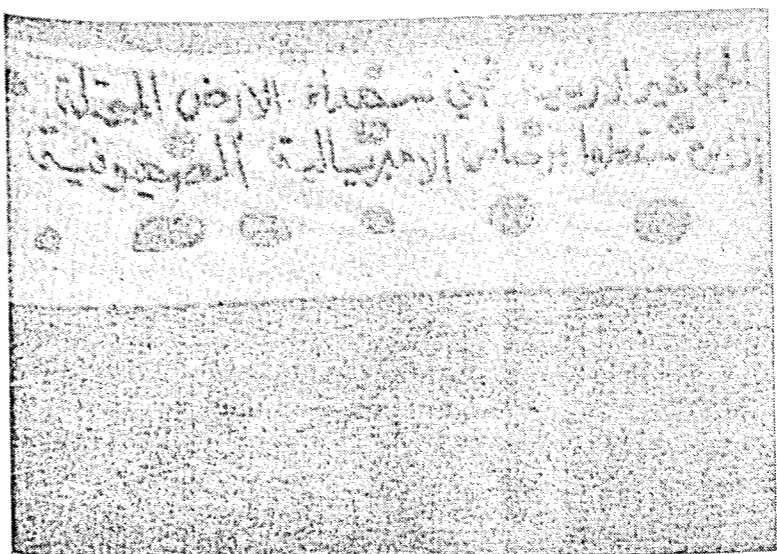 الجماهير العربية تحي شهداء الارض المحتلة
الذين سقطوا برصاص الامبريالية الصهيونية